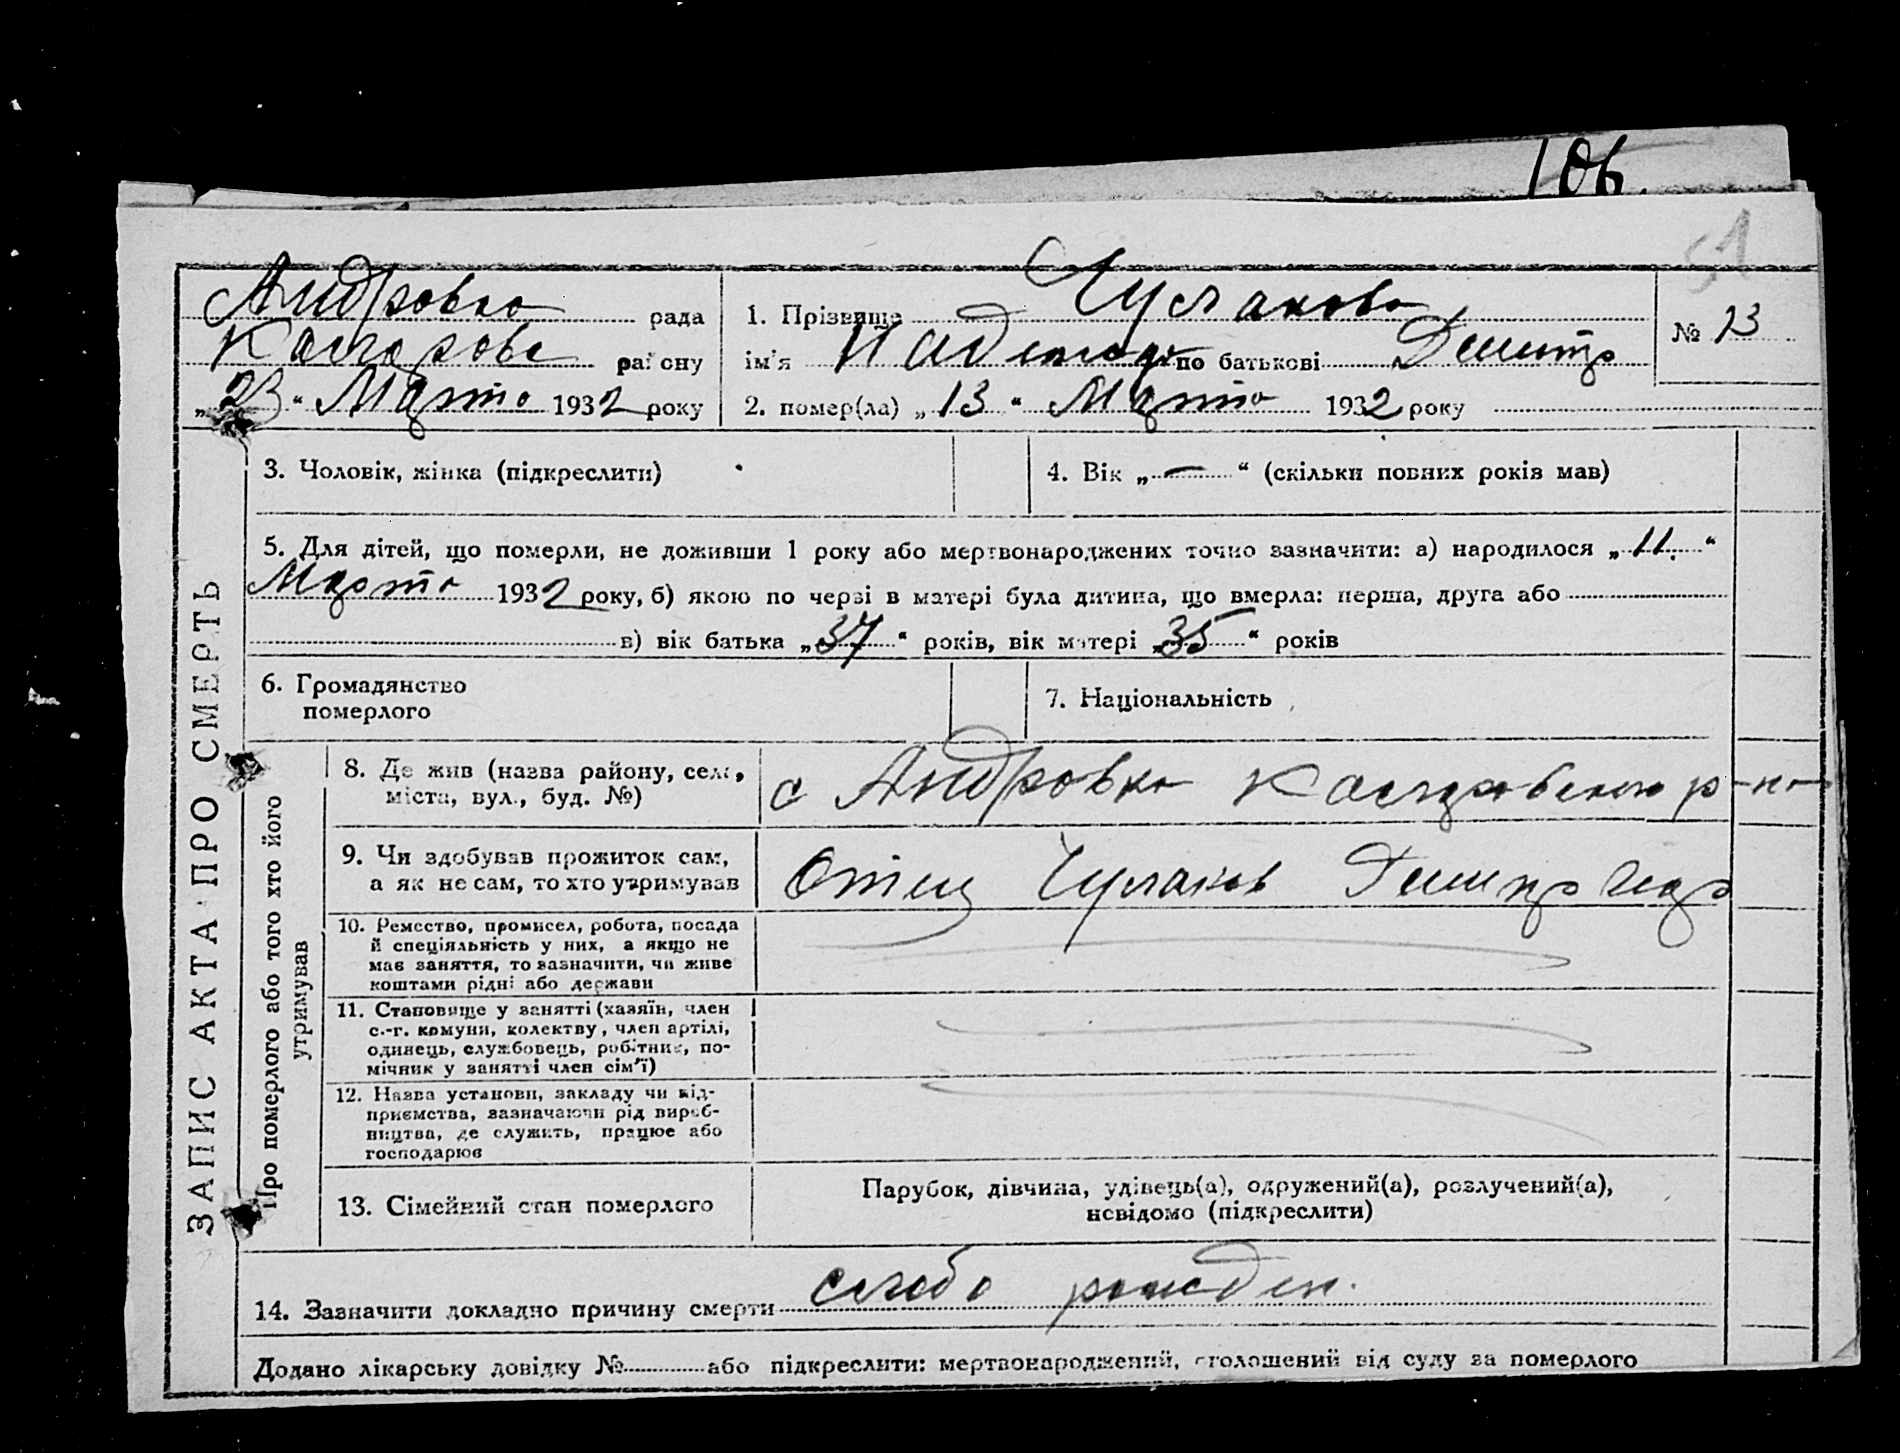 106.
51
Андровка рада
1. Прізвище Чулакова
№ 13
району
ім'я по батькові Дмитр
„23“ Марта 1932 року
2. помер(ла) „13“ Марта 1932 року
ЗАПИС АКТА ПРО СМЕРТЬ
3. Чоловік, жінка (підкреслити)
4. Вік „—“ (скільки повних років мав)
5. Для дітей, що померли, не доживши 1 року або мертвонароджених точно зазначити: а) народилося „11.“
Марта 1932 року, б) якою по черзі в матері була дитина, що вмерла: перша, друга або
в) вік батька „37“ років, вік матері „35“ років
6. Громадянство
померлого
7. Національність
Про померлого або того хто його
утримував
8. Де жив (назва району, села,
міста, вул., буд. №)
с Андровка р-на
9. Чи здобував прожиток сам,
а як не сам, то хто утримував
Отец Чулаков Дмитр
10. Ремесство, промисел, робота, посада
й спеціяльність у них, а якщо не
має заняття, то зазначити, чи живе
коштами рідні або держави
11. Становище у занятті (хазяїн, член
с.-г. комуни, колективу, член артілі,
одинець, службовець, робітник, по-
мічник у занятті член сім'ї)
12. Назва установи, закладу чи під-
приємства, зазначаючи рід вироб-
ництва, де служить, працює або
господарює
13. Сімейний стан померлого
Парубок, дівчина, удівець(а), одружений(а), розлучений(а),
невідомо (підкреслити)
14. Зазначити докладно причину смерти слабо рожден.
Додано лікарську довідку № або підкреслити: мертвонароджений, оголошений від суду за померлого